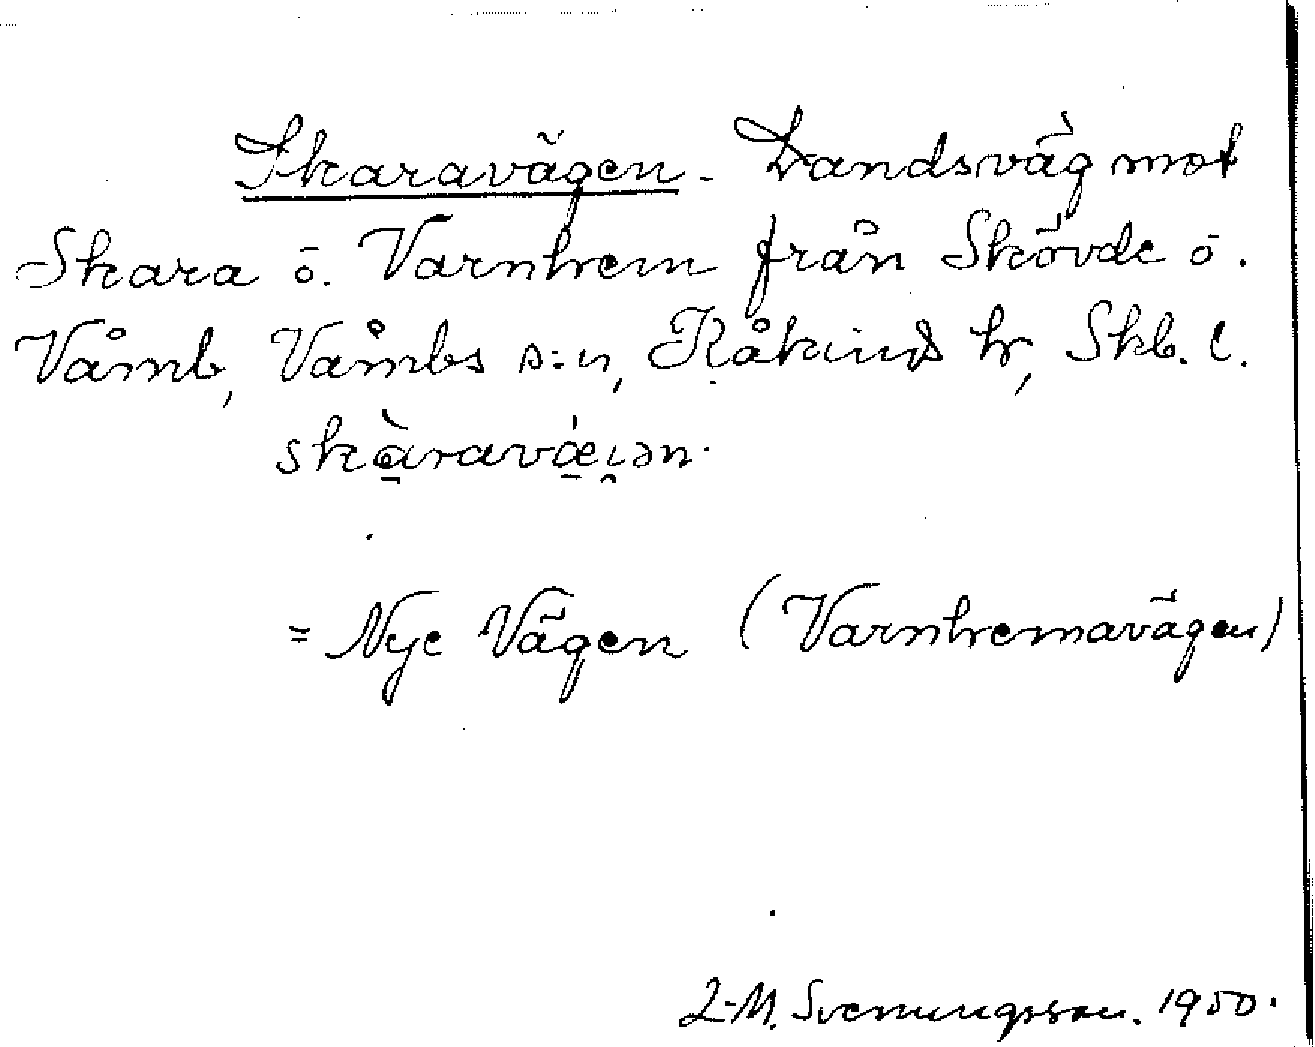 Skaravägen. Landsväg mot
Skara ö. Varnhem från Skövde ö.
Våmb, Våmbs s:n, Kåkinds hr, Skb. l.
skàravǽi̯ən.
= Nye Vägen (Varnhemavägen)
L-M. Svenungsson. 1950.